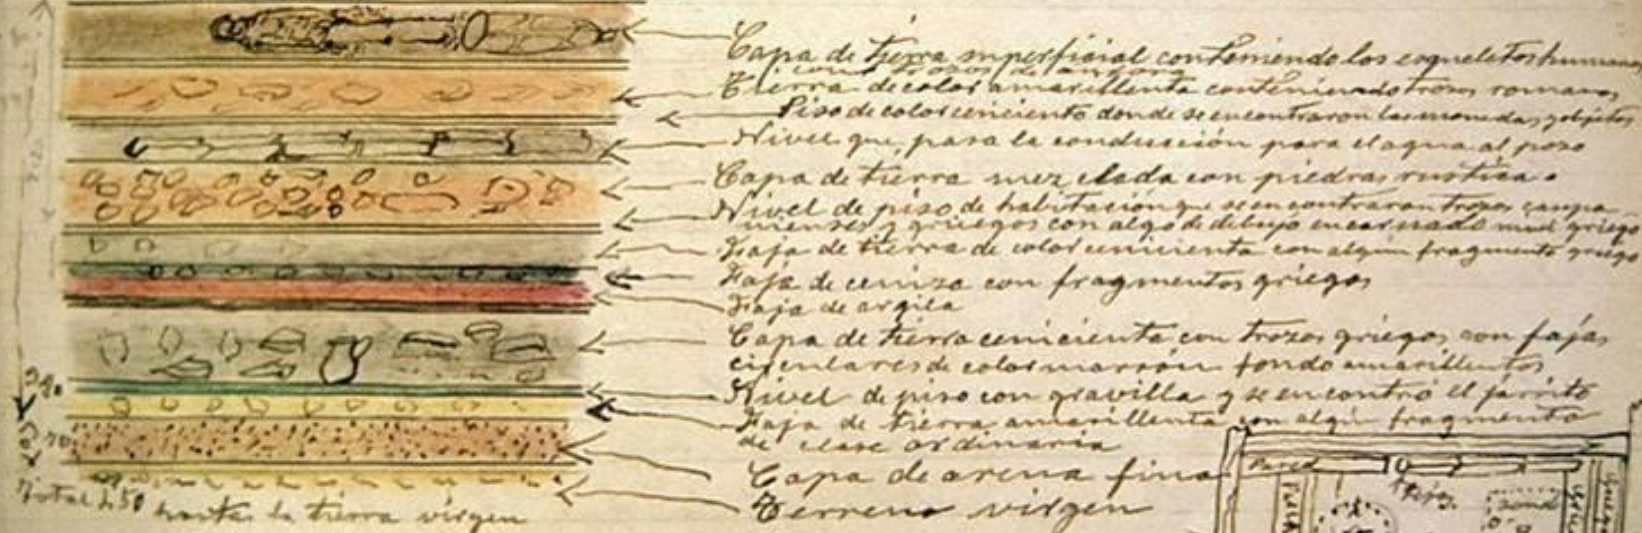 Capa de tierra superficial conteniendo los esqueletos humanos
con trozos de ánfora
Tierra de color amarillenta conteniendo trozos romanos
Piso de color ceniciento donde se encontraron las monedas y objetos
Nivel que pasa la conducción para el agua al pozo
Capa de tierra mezclada con piedras rustica
Nivel de piso de habitación que se encontraron trozos campa
nienses y griegos con algo de dibujo encarnado griego
Faja de tierra de color ceniciento con algún fragmento griego
Faja de ceniza con fragmentos griegos
Faja de argila
Capa de tierra ceniciento con trozos griegos con fajas
circulares de color marrón fondo amarillentos
Nivel de piso con gravilla y se encontró el jarrito
Faja de tierra amarillenta con algún fragmento
de clase ordinaria
Capa de arena fina
Terreno virgen
Total 4'50 hasta la tierra virgen
Pared